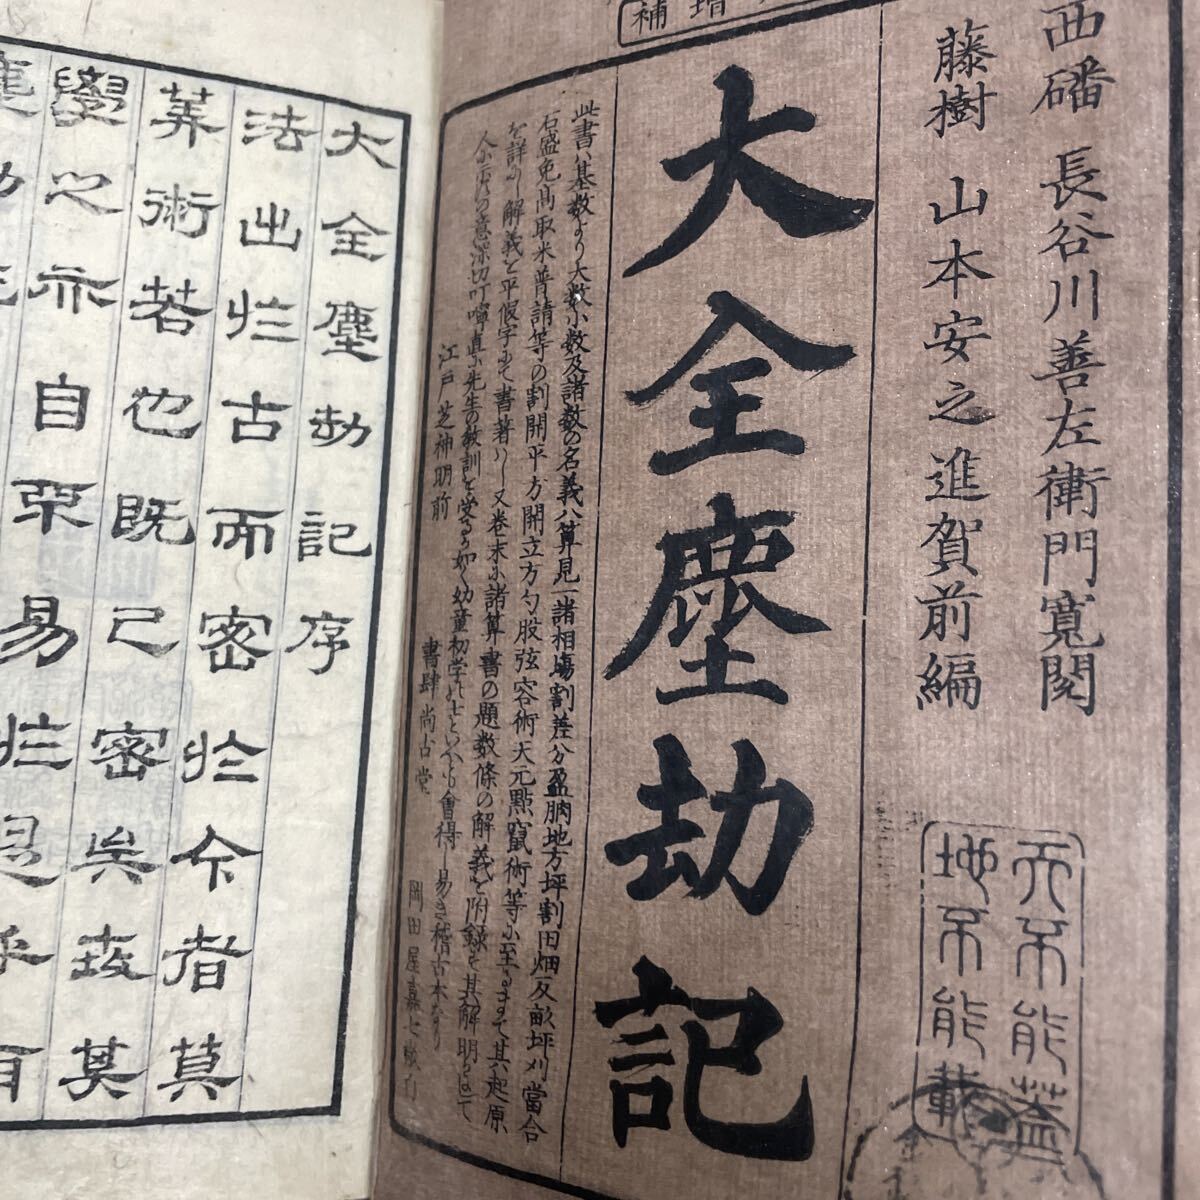 補 増
西磻 長谷川善左衛門寛閲
藤樹 山本安之進賀前編
天不能蓋
地不能載
大全塵劫記
此書ハ基数より大数小数及諸数の名義八算見一諸相場割差分盈朒地方坪割田畑反畝坪刈當合
石盛免高取米普請等の割開平方開立方勾股弦容術天元點竄術等に至るまで其起原
を詳にし解義を平假字にて書著ハし又卷末に諸算書の題数條の解義を附録し其解明
直に先生の教訓を受る如く幼童初学の士といへとも會得し易き稽古本なり
江戸 芝神明前
書肆 尚古堂
岡田屋嘉七
大全塵劫記序
法出於古而密於今者莫
算術若也既已密矣故其
學之亦自不易於是乎有